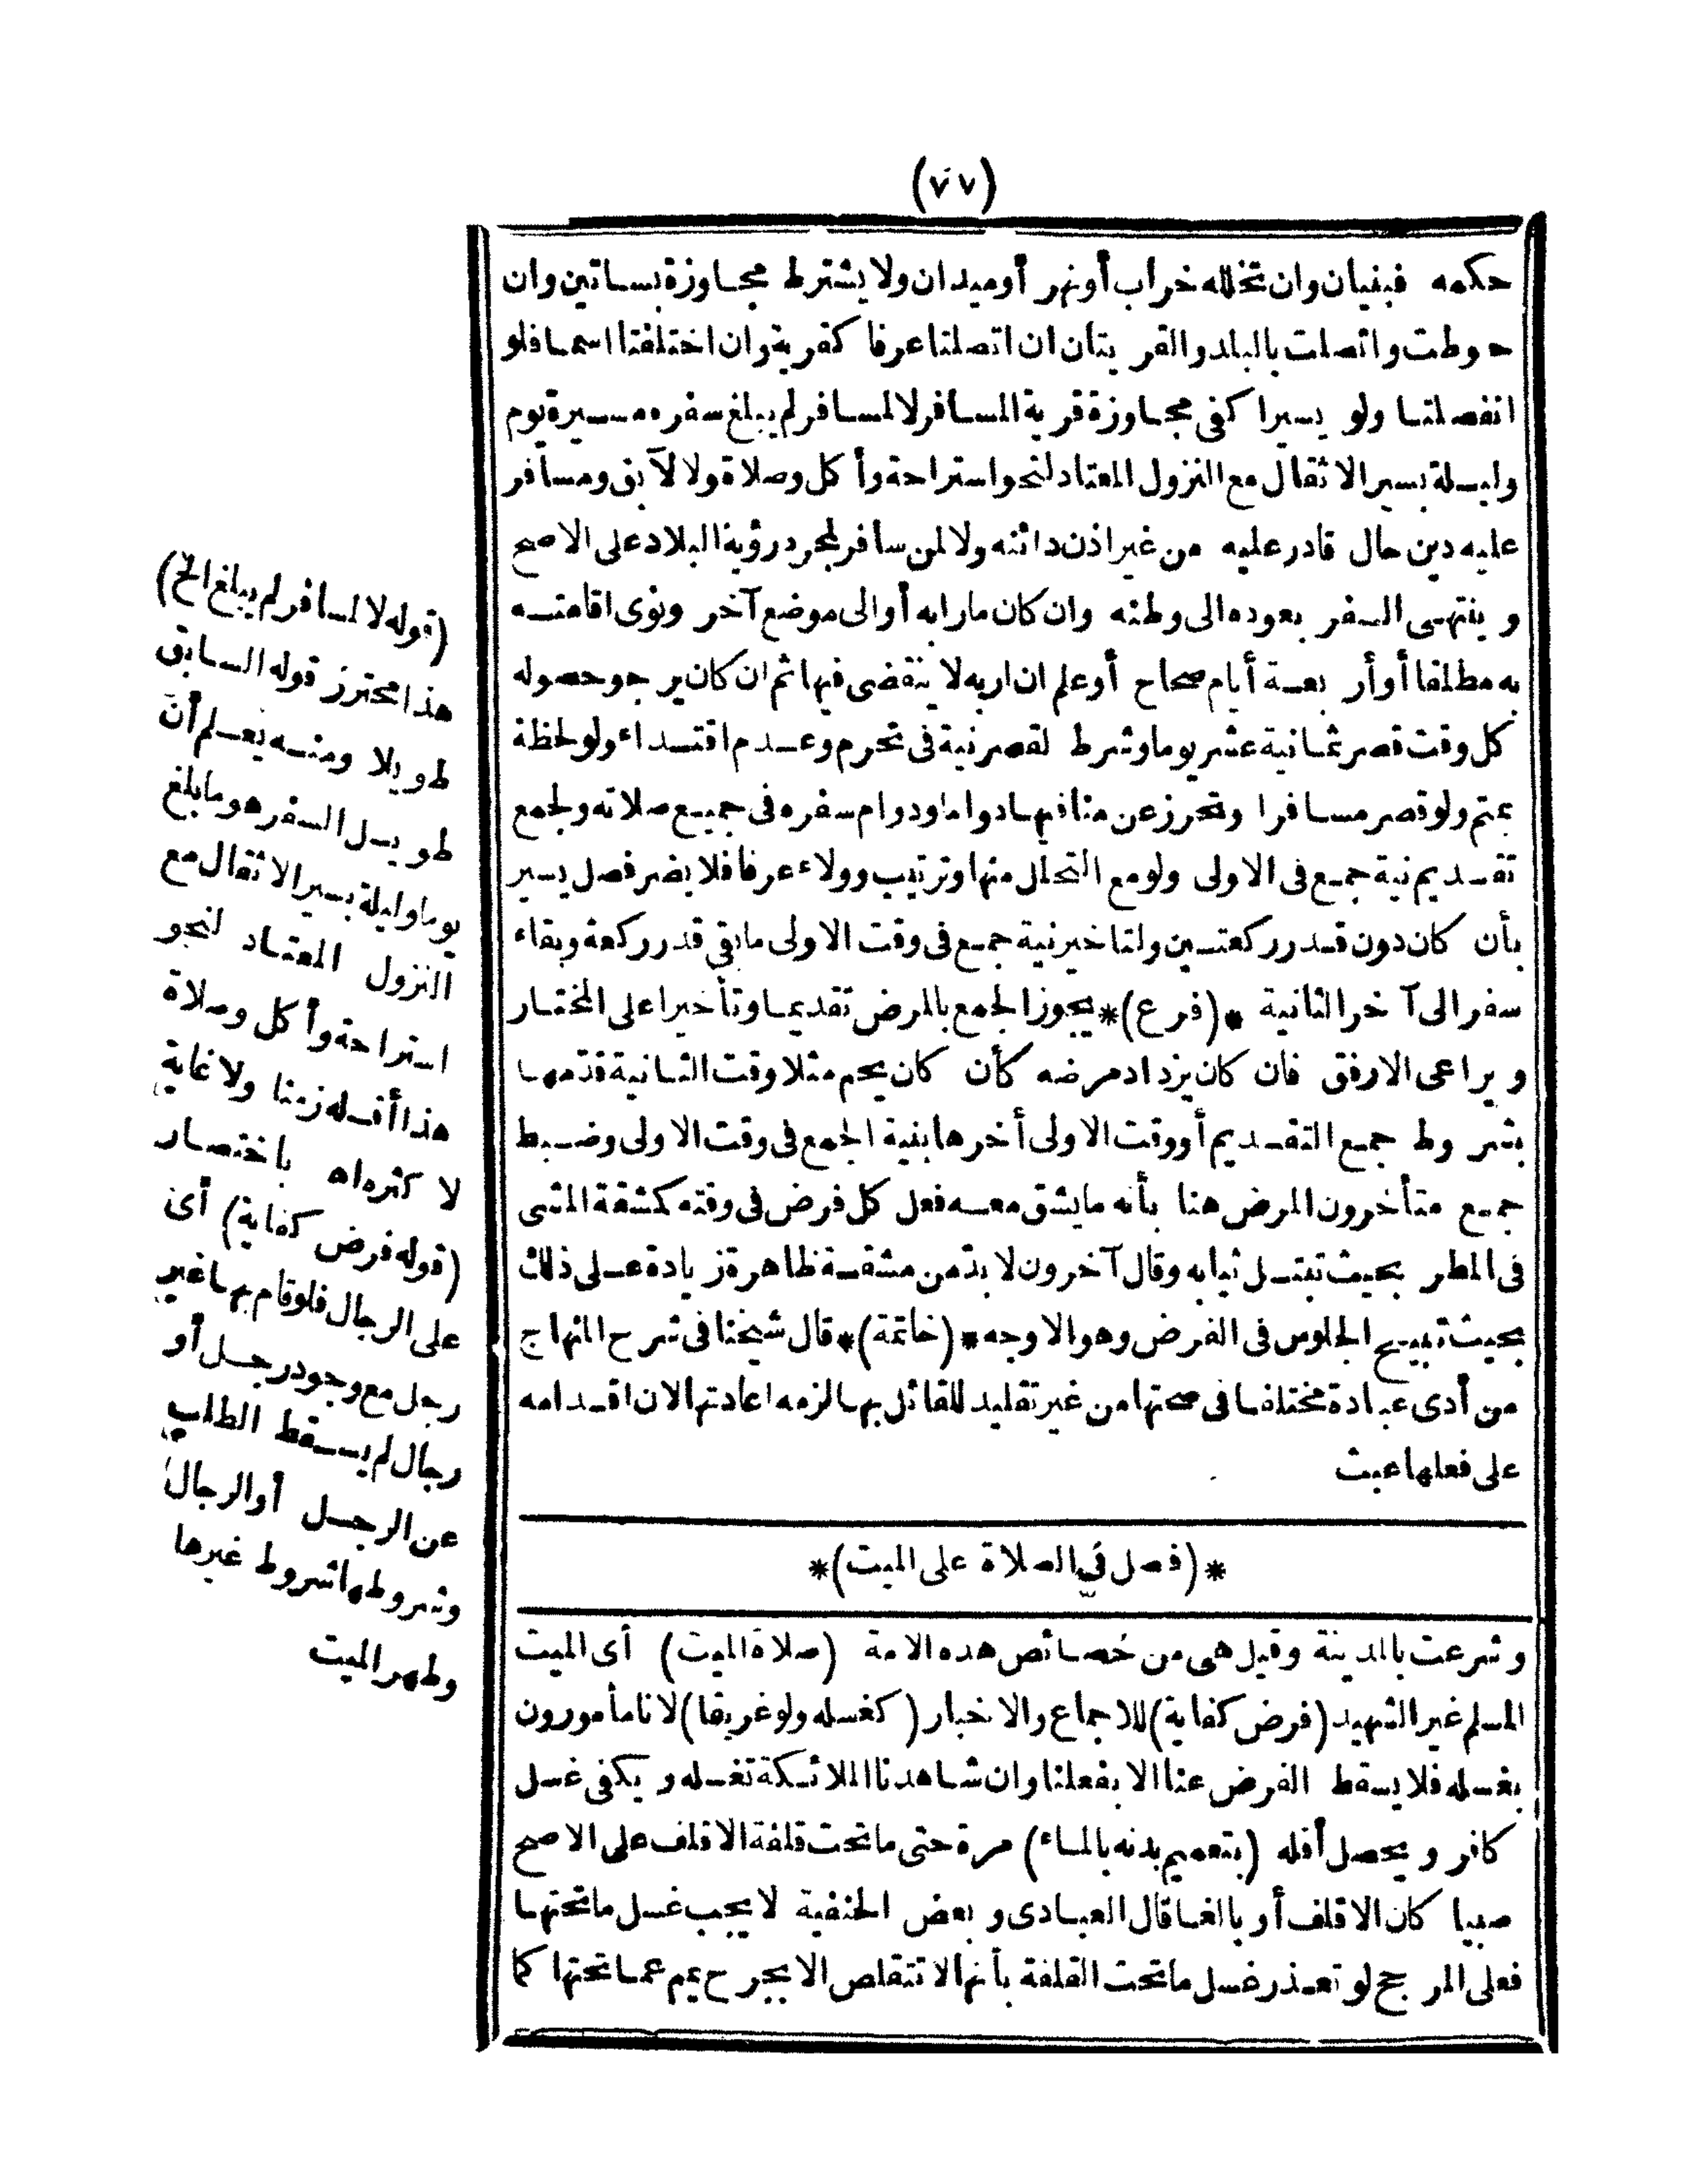 (٧٧)
حكمه فبنيان وان تخلله خراب أو نهر أو ميدان ولا يشترط مجاوزة بساتين وان
حوطت واتصلت بالبلد والقريتان ان اتصلتا عرفا كقرية وان اختلفتا اسما فلو
انفصلتا ولو يسيرا كفى مجاوزة قرية المسافر لا لمسافر لم يبلغ سفره مسيرة يوم
وليلة بسير الاثقال مع النزول المعتاد لنحو استراحة وأكل وصلاة ولا لآبق ومسافر
عليه دين حال قادر عليه من غير اذن دائنه ولا لمن سافر لمجرد رؤية البلاد على الاصح
وينتهى السفر بعوده الى وطنه وان كان مارا به أو الى موضع آخر ونوى اقامته
به مطلقا أو أربعة أيام صحاح أو علم ان اربه لا ينقضى فيها ثم ان كان يرجو حصوله
كل وقت قصر ثمانية عشر يوما وشرط لقصر نية فى تحرم وعدم اقتداء ولو لحظة
بمتم ولو قصر مسافرا وتحرز عن منافيها دواما ودوام سفره فى جميع صلاته ولجمع
تقديم نية جمع فى الاولى ولو مع التحلل منها وترتيب وولاء عرفا فلا يضر فصل يسير
بأن كان دون قدر ركعتين ولتاخير نية جمع فى وقت الاولى ما بقى قدر ركعة وبقاء
سفر الى آخر الثانية *(فرع)* يجوز الجمع بالمرض تقديما وتأخيرا على المختار
ويراعى الارفق فان كان يزداد مرضه كأن كان يحم مثلا وقت الثانية قدّمها
بشروط جمع التقديم أو وقت الاولى أخرها بنية الجمع فى وقت الاولى وضبط
جمع متأخرون المرض هنا بأنه ما يشق معه فعل كل فرض فى وقته كمشقة المشى
فى المطر بحيث تبتل ثيابه وقال آخرون لا بدّ من مشقة ظاهرة زيادة على ذلك
بحيث تبيح الجلوس فى الفرض وهو الاوجه *(خاتمة)* قال شيخنا فى شرح المنهاج
من أدى عبادة مختلفا فى صحتها من غير تقليد للقائل بها لزمه اعادتها لان اقدامه
على فعلها عبث
*(فصل في الصلاة على الميت)*
وشرعت بالمدينة وقيل هى من خصائص هده الامة (صلاة الميت) أى الميت
المسلم غير الشهيد (فرض كفاية) للاجماع والاخبار (كغسله ولو غريقا) لانا مأمورون
بغسله فلا يسقط الفرض عنا الا بفعلنا وان شاهدنا الملائكة تغسله ويكفى غسل
كافر ويحصل أقله (بتعميم بدنه بالماء) مرة حتى ما تحت قلفة الاقلف على الاصح
صبيا كان الاقلف أو بالغا قال العبادى وبعض الحنفية لا يجب غسل ما تحتها
فعلى المرجح لو تعذر غسل ما تحت القلفة بأنها لا تتقلص الا بجرح يمم عما تحتها كما
(قوله لا لمسافر لم يبلغ الخ)
هذا محترز قوله السابق
طويلا ومنه يعلم أنّ
طويل السفر هو ما بلغ
يوما وليلة بسير الاثقال مع
النزول المعتاد لنحو
استراحة وأكل وصلاة
هذا أقله زمنا ولا غاية
لا كثره اه باختصار
(قوله فرض كفاية) أى
على الرجال فلو قام بها غير
رجل مع وجود رجل أو
رجال لم يسقط الطلب
عن الرجل أو الرجال
وشروطها شروط غيرها
وطهر الميت